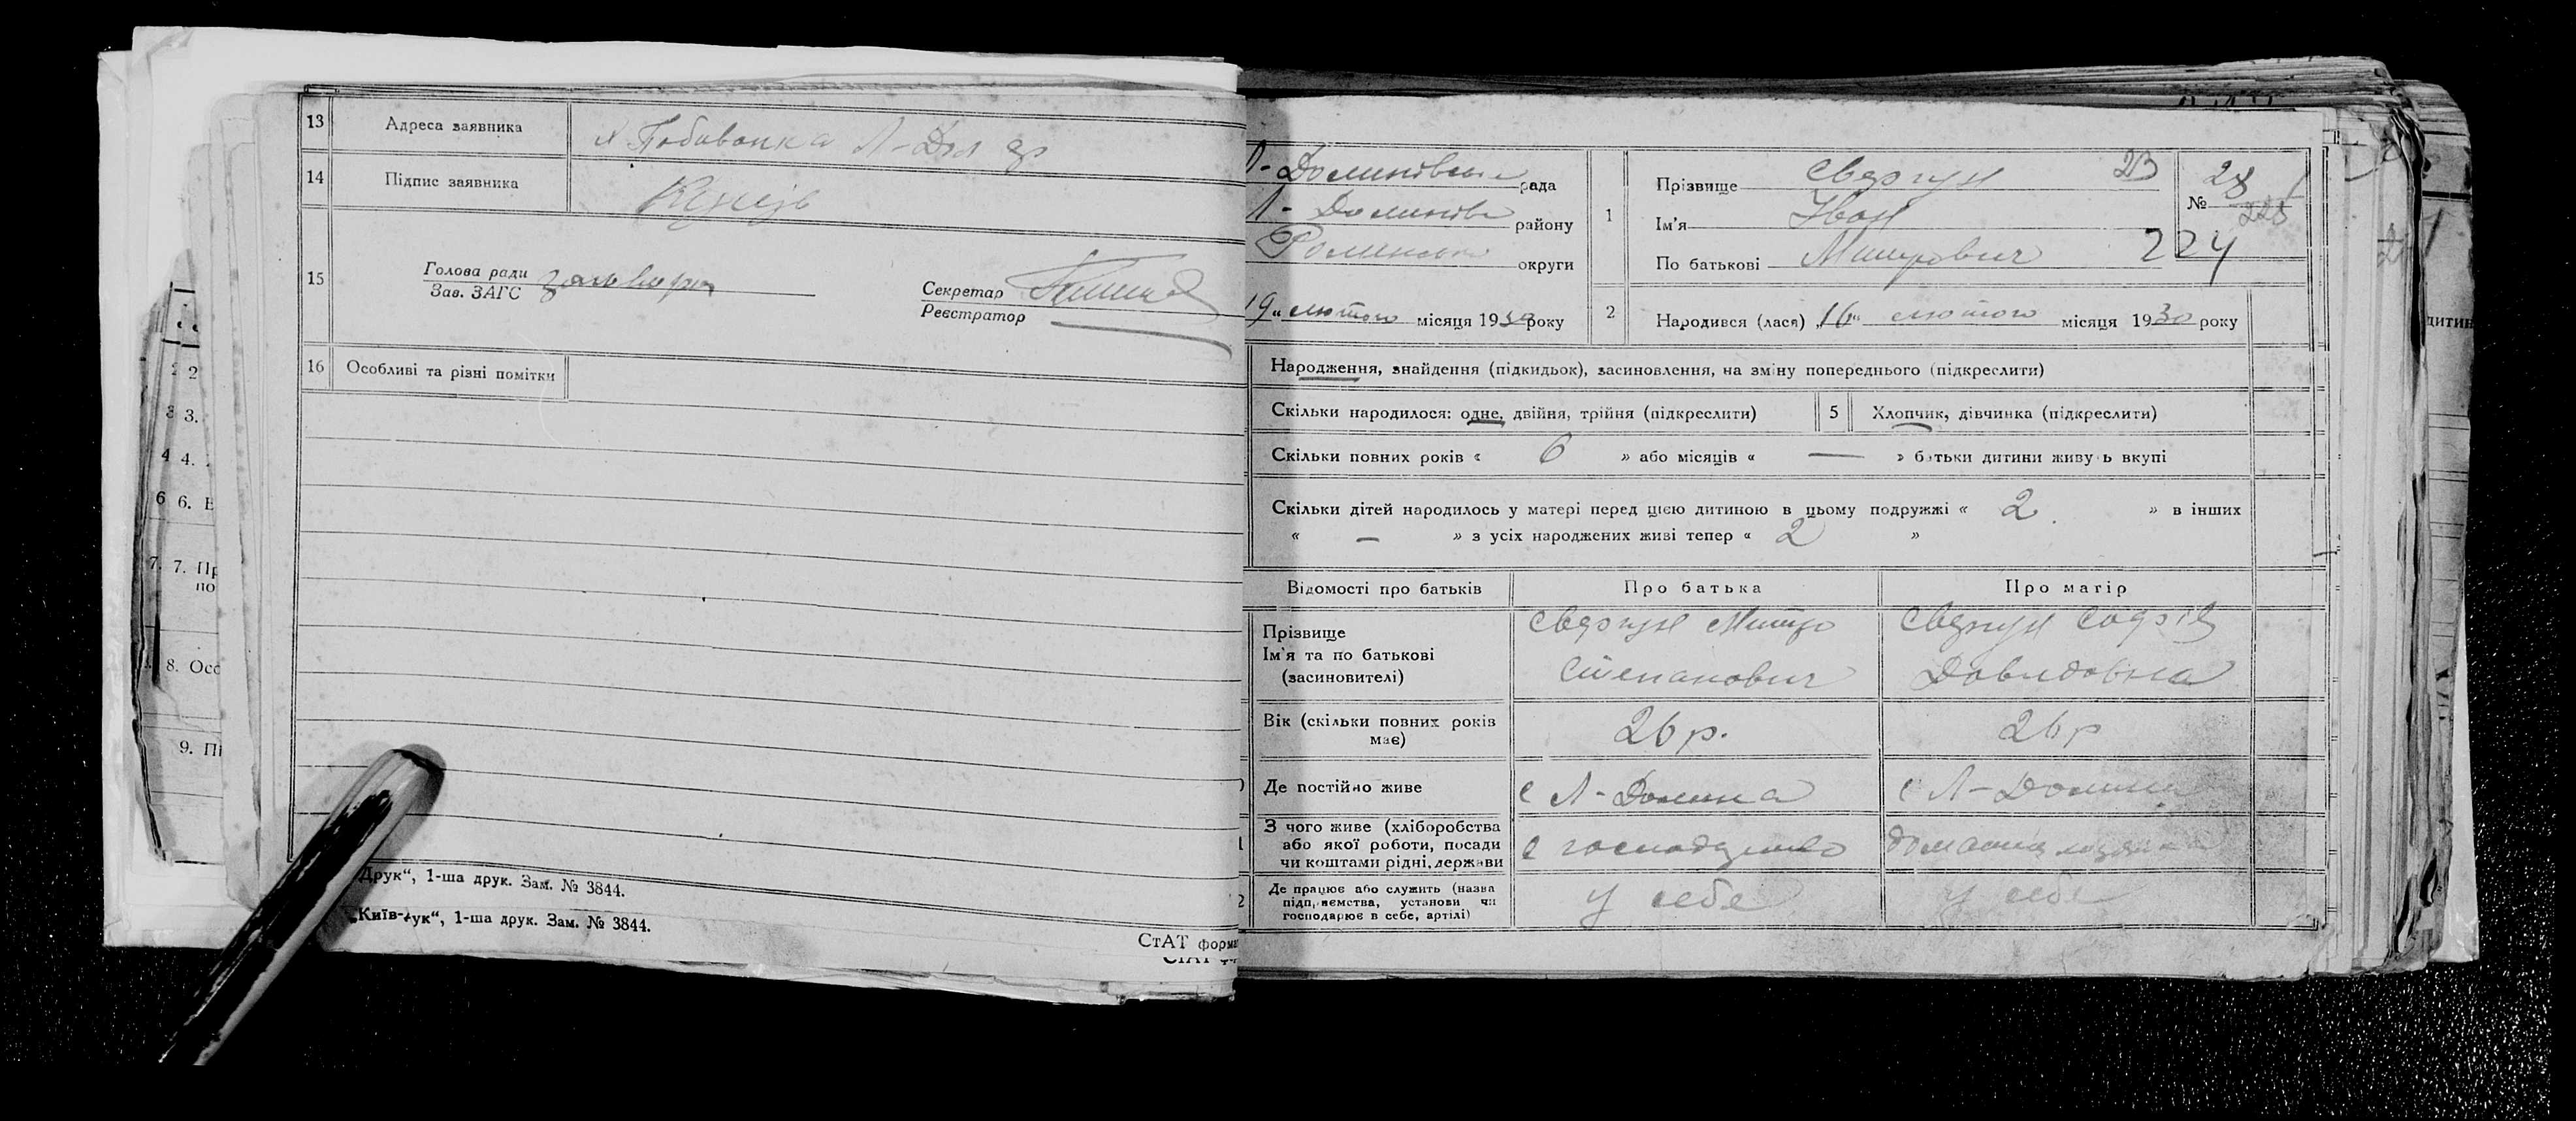 13 Адреса заявника х Побиванка Л-Дол др
14 Підпис заявника
15 Голова ради
Зав. ЗАГС
Секретар
Реєстратор
16 Особливі та різні помітки
Друк“, 1-ша друк. Зам. № 3844.
„Київ-Друк“, 1-ша друк. Зам. № 3844.
СтАТ форма
2 2
3 3.
4 4.
6 6. В
7. 7. Пр
по
8. Осо
9. Пі
Л-Долинівська рада
Л-Долинів району
Роменської округи
19 „ лютого місяця 1930 року
1 Прізвище Свергун 23
Ім'я Іван
По батькові Митрович 224
№ 28
228
2 Народився (лася) „16“ лютого місяця 1930 року
Народження, знайдення (підкидьок), засиновлення, на зміну попереднього (підкреслити)
Скільки народилося: одне, двійня, трійня (підкреслити) 5 Хлопчик, дівчинка (підкреслити)
Скільки повних років « 6 » або місяців « — » батьки дитини живуть вкупі
Скільки дітей народилось у матері перед цією дитиною в цьому подружжі « 2 » в інших
« — » з усіх народжених живі тепер « 2 »
Відомості про батьків Про батька Про матір
Прізвище
Ім'я та по батькові
(засиновителі)
Свергун Митро
Степанович
Свергун Софія
Давидовна
Вік (скільки повних років має) 26 р. 26 р
Де постійно живе с Л-Долина с Л-Долина
З чого живе (хліборобства
або якої роботи, посади
чи коштами рідні, держави
Де працює або служить (назва
підприємства, установи чи
господарює в себе, артілі)
у себе у себе
дитин